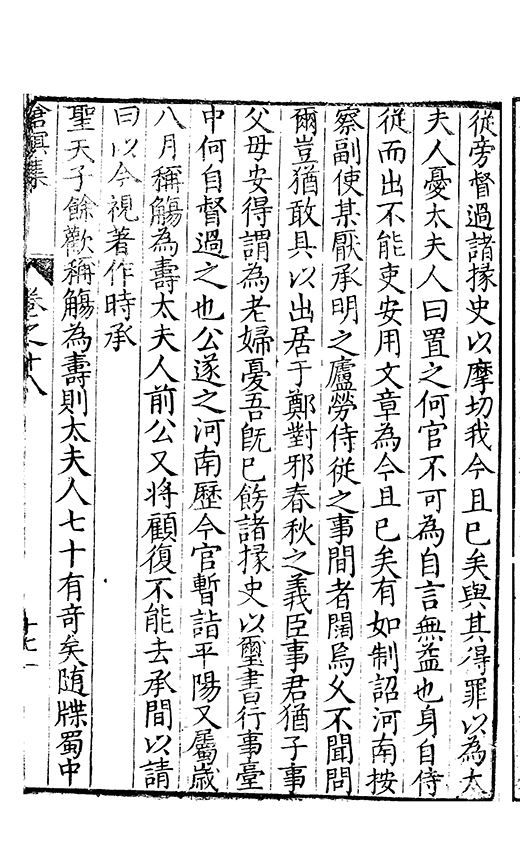 從旁督過諸掾史以摩切我今且已矣與其得罪以為太
夫人憂太夫人曰置之何官不可為自言無益也身自侍
從而出不能吏安用文章為今且已矣有如制詔河南按
察副使某厭承明之廬勞侍從之事間者闊焉父不聞問
爾豈猶敢具以出居于鄭對邪春秋之義臣事君猶子事
父母安得謂為老婦憂吾旣已飭諸掾史以璽書行事臺
中何自督過之也公遂之河南歷今官暫詣平陽又屬歲
八月稱觴為壽太夫人前公又将顧復不能去承間以請
曰以今視著作時承
聖天子餘歡稱觴為壽則太夫人七十有奇矣随牒蜀中
滄溟集 卷之十八 十七